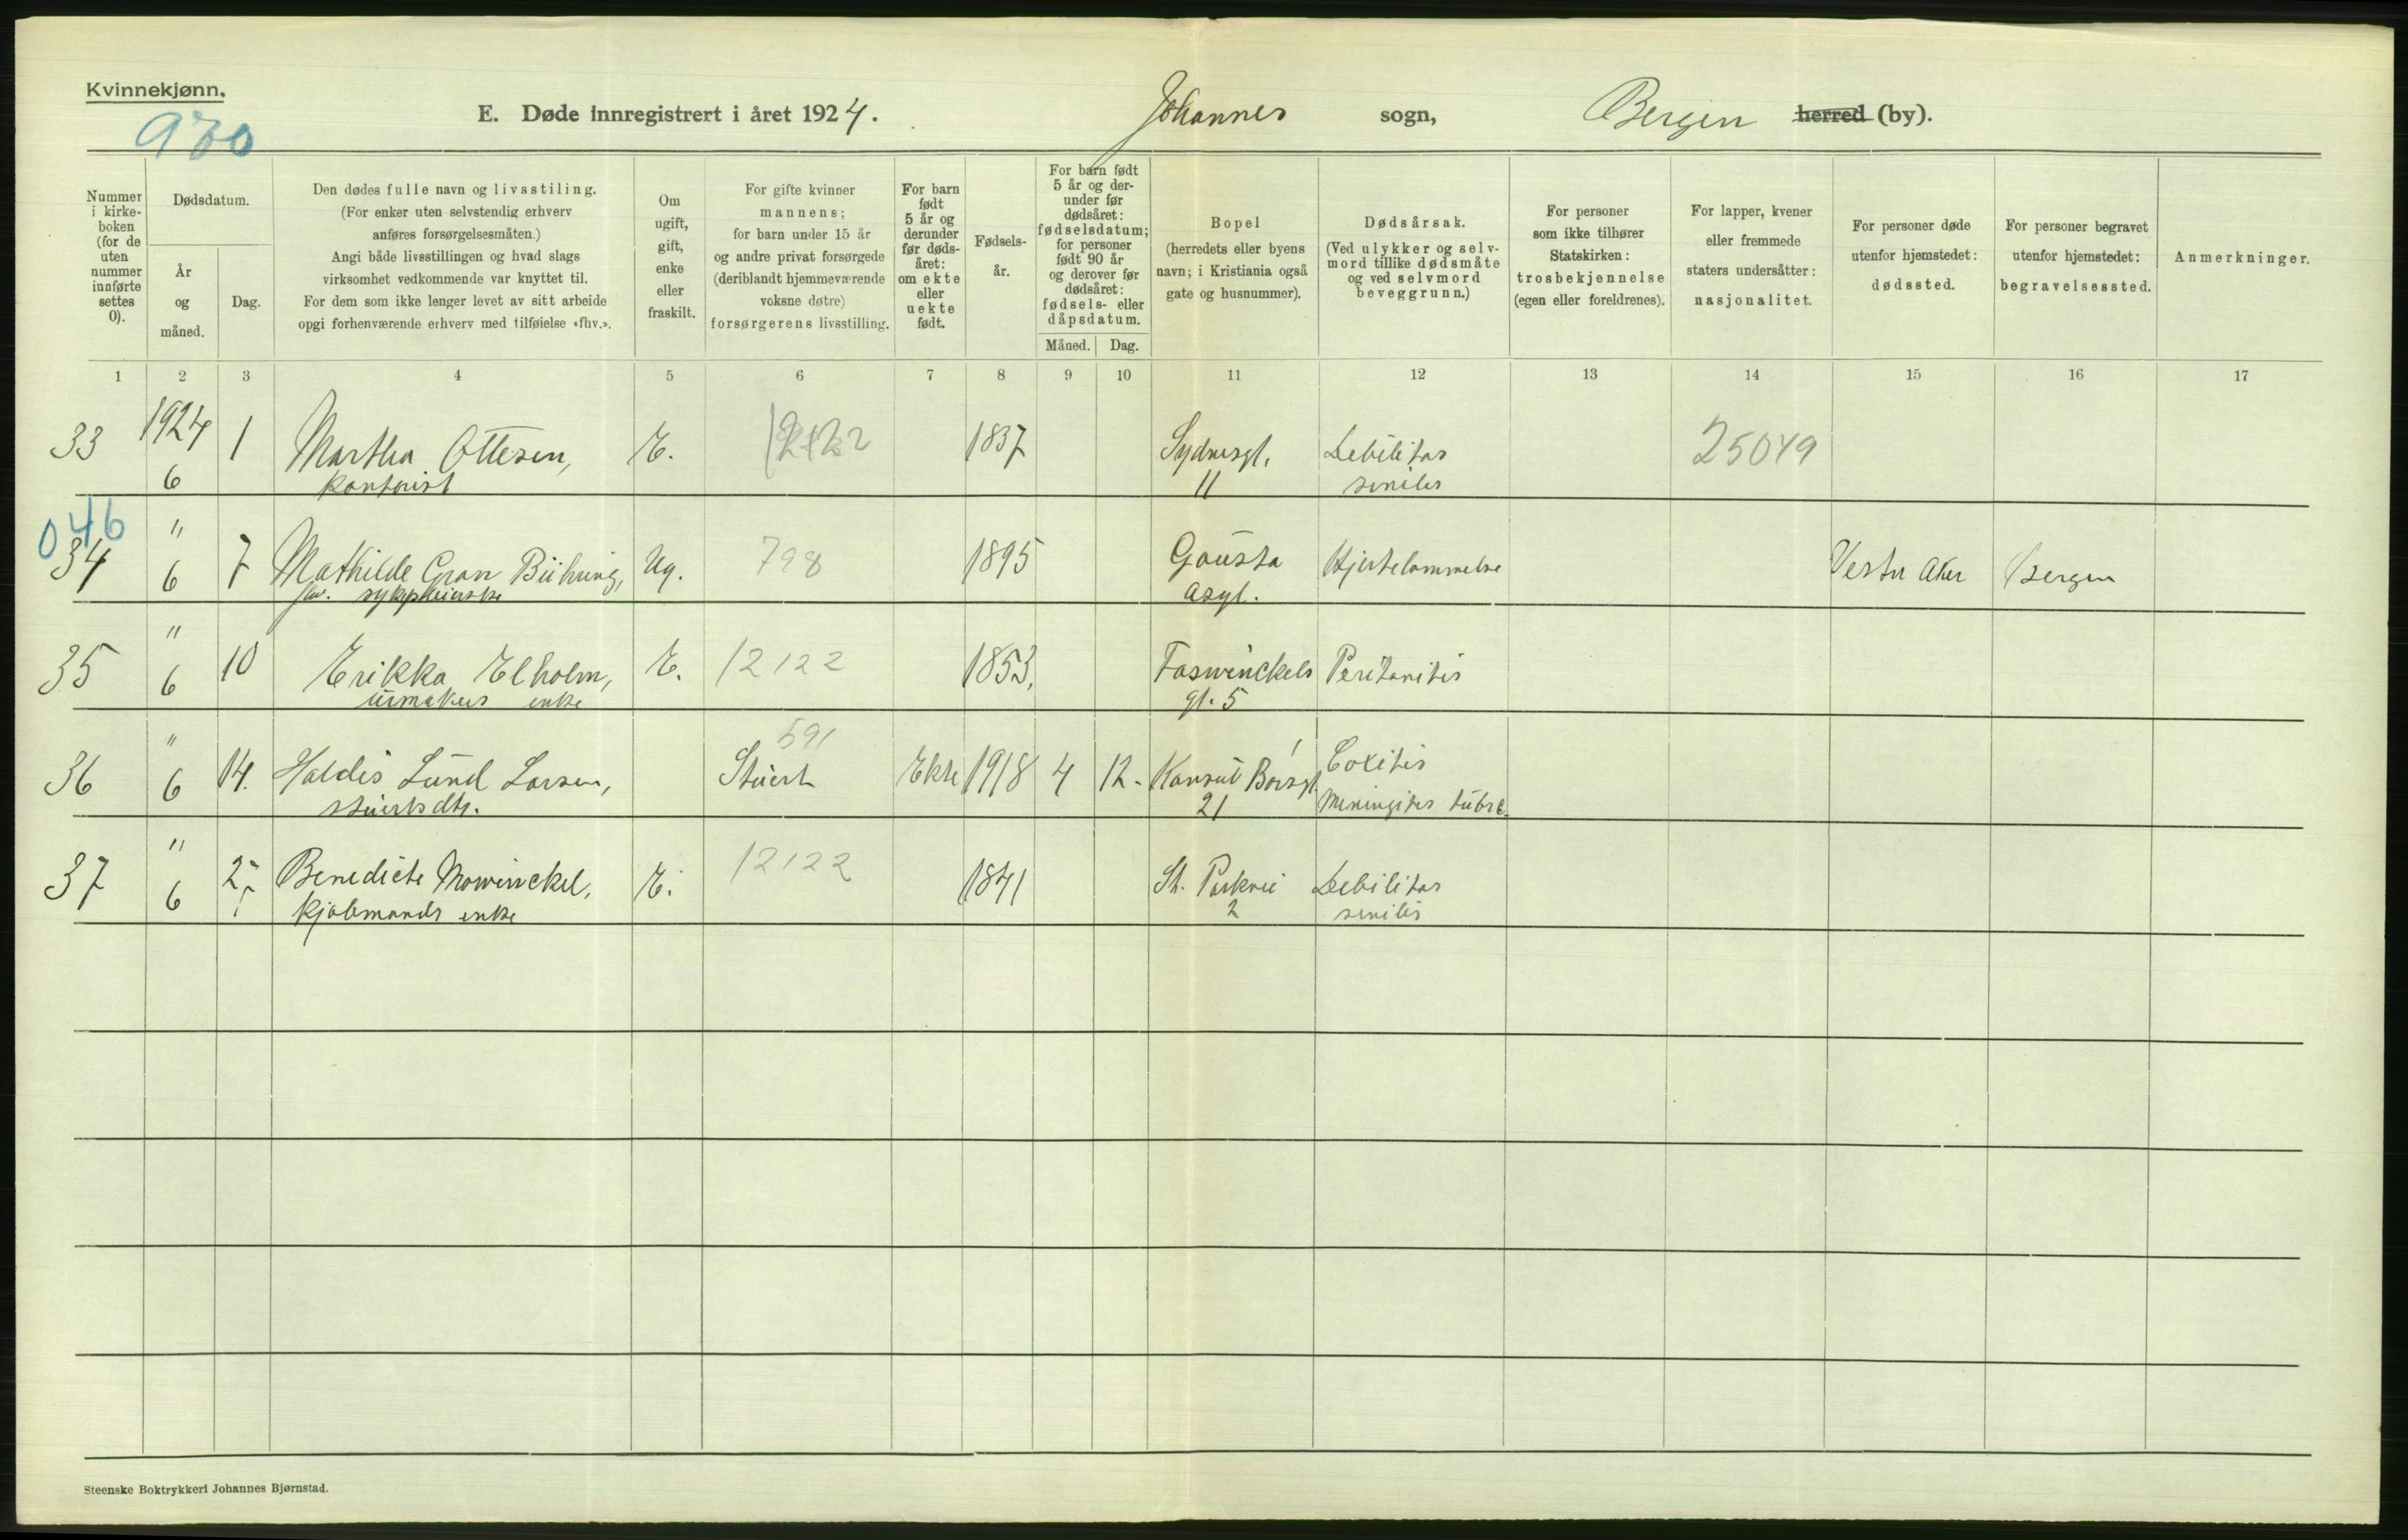 Kvinnekjønn.
970
E. Døde innregistrert i året 1924. Johannes sogn, Bergen herred (by).
Nummer i kirke-boken (for de uten nummer innførte settes 0).
Dødsdatum.
År og måned.
Dag.
Den dødes fulle navn og livsstiling.
(For enker uten selvstendig erhverv
anføres forsørgelsesmåten.)
Angi både livsstillingen og hvad slags
virksomhet vedkommende var knyttet til.
For dem som ikke lenger levet av sitt arbeide
opgi forhenværende erhverv med tilføielse «fhv.».
Om ugift, gift, enke eller fraskilt.
For gifte kvinner
mannens;
for barn under 15 år
og andre privat forsørgede
(deriblandt hjemmeværende
voksne døtre)
forsørgerens livsstilling.
For barn født 5 år og derunder før døds-året: om ekte eller uekte født.
Fødsels-år.
For barn født
5 år og der-
under før
dødsåret:
fødselsdatum;
for personer
født 90 år
og derover før
dødsåret:
fødsels- eller
dåpsdatum.
Måned. Dag.
Bopel
(herredets eller byens
navn; i Kristiania også
gate og husnummer).
Dødsårsak.
(Ved ulykker og selv-
mord tillike dødsmåte
og ved selvmord
beveggrunn.)
For personer
som ikke tilhører
Statskirken:
trosbekjennelse
(egen eller foreldrenes).
For lapper, kvener
eller fremmede
staters undersåtter:
nasjonalitet.
For personer døde
utenfor hjemstedet:
dødssted.
For personer begravet
utenfor hjemstedet:
begravelsessted.
Anmerkninger.
1 2 3 4 5 6 7 8 9 10 11 12 13 14 15 16 17
33 1924 1 Martha Ottesen, E. 1837 Sydnesgt. Debilitas 25049
6 kontorist 11 senilis
046
34 " 6 7 Mathilde Gran Bühring, Ug. 798 1895 Gausta Hjertelammelse Vestre Aker Bergen
fhv. sykepleierske asyl.
35 " 6 10 Erikka Elholm, E. 12122 1853. Foswinckels Peritonitis
urmakers enke gt. 5
591
36 " 6 14. Haldis Lund Larsen, Stuert Ekte 1918 4 12- Konsul Børsgt. Coxitis
stuerts dtr. 21 Meningitis tuberc.
37 " 6 25 Benedicte Mowinckel, E. 12122 1841 St. Parkvei Debilitas
kjøbmands enke 2 senilis
Steenske Boktrykkeri Johannes Bjørnstad.